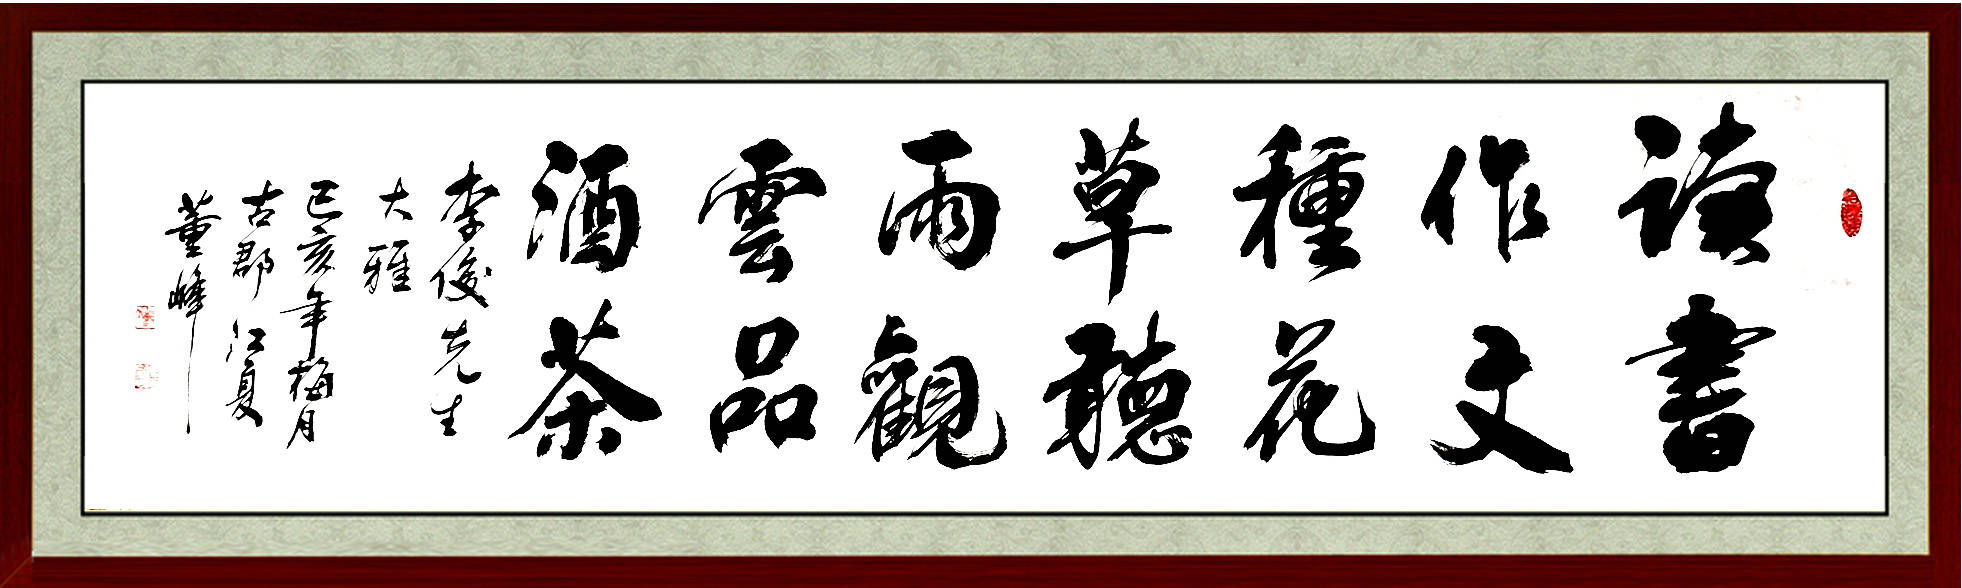 讀書
作文
種花
草聽
雨觀
雲品
酒茶
李俊先生
大雅
己亥年梅月
古郡江夏
董峰